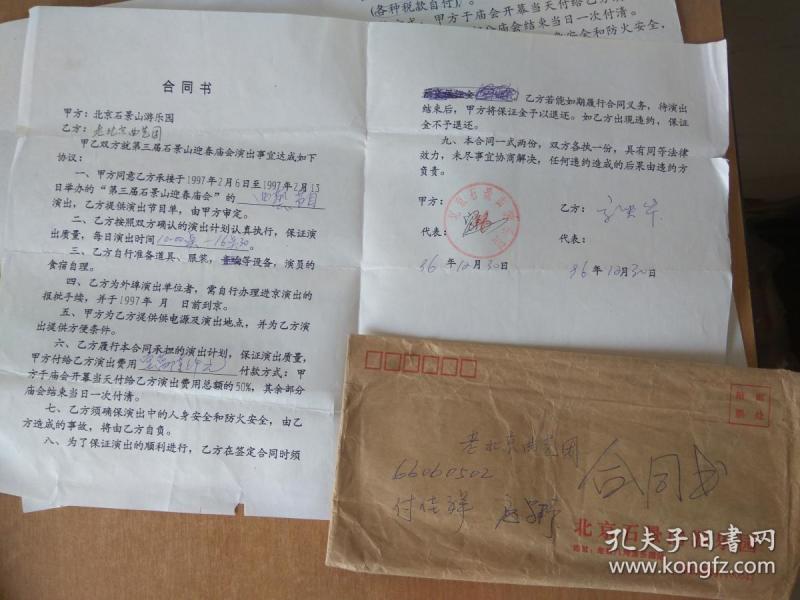 (各种税款自付)。
甲方于庙会开幕当天付给乙方
庙会结束当日一次付清。
安全和防火安全,
合同书
甲方:北京石景山游乐园
乙方:老北京曲艺团
甲乙双方就第三届石景山迎春庙会演出事宜达成如下
协议:
一、甲方同意乙方承接于1997年2月6日至1997年2月13
日举办的“第三届石景山迎春庙会”的 曲艺节目
演出,乙方提供演出节目单,由甲方审定。
二、乙方按照双方确认的演出计划认真执行,保证演
出质量,每日演出时间
三、乙方自行准备道具、服装,等设备,演员的
食宿自理。
四、乙方为外埠演出单位者,需自行办理进京演出的
报批手续,并于1997年 月 日前到京。
五、甲方为乙方提供供电源及演出地点,并为乙方演
出提供方便条件。
六、乙方履行本合同承担的演出计划,保证演出质量,
甲方付给乙方演出费用 付款方式:甲
方于庙会开幕当天付给乙方演出费用总额的50%,其余部分
庙会结束当日一次付清。
七、乙方须确保演出中的人身安全和防火安全,由乙
方造成的事故,将由乙方自负。
八、为了保证演出的顺利进行,乙方在签定合同时须
乙方若能如期履行合同义务,待演出
结束后,甲方将保证金予以退还。如乙方出现违约,保证
金不予退还。
九、本合同一式两份,双方各执一份,具有同等法律
效力,未尽事宜协商解决,任何违约造成的后果由违约方
负责。
甲方:
乙方:
代表:
代表:
96年12月30日
96年12月30日
贴邮
票处
老北京曲艺团
66060502
合同书
付佳祥
北京石景
孔夫子旧书网
www.kongfz.com